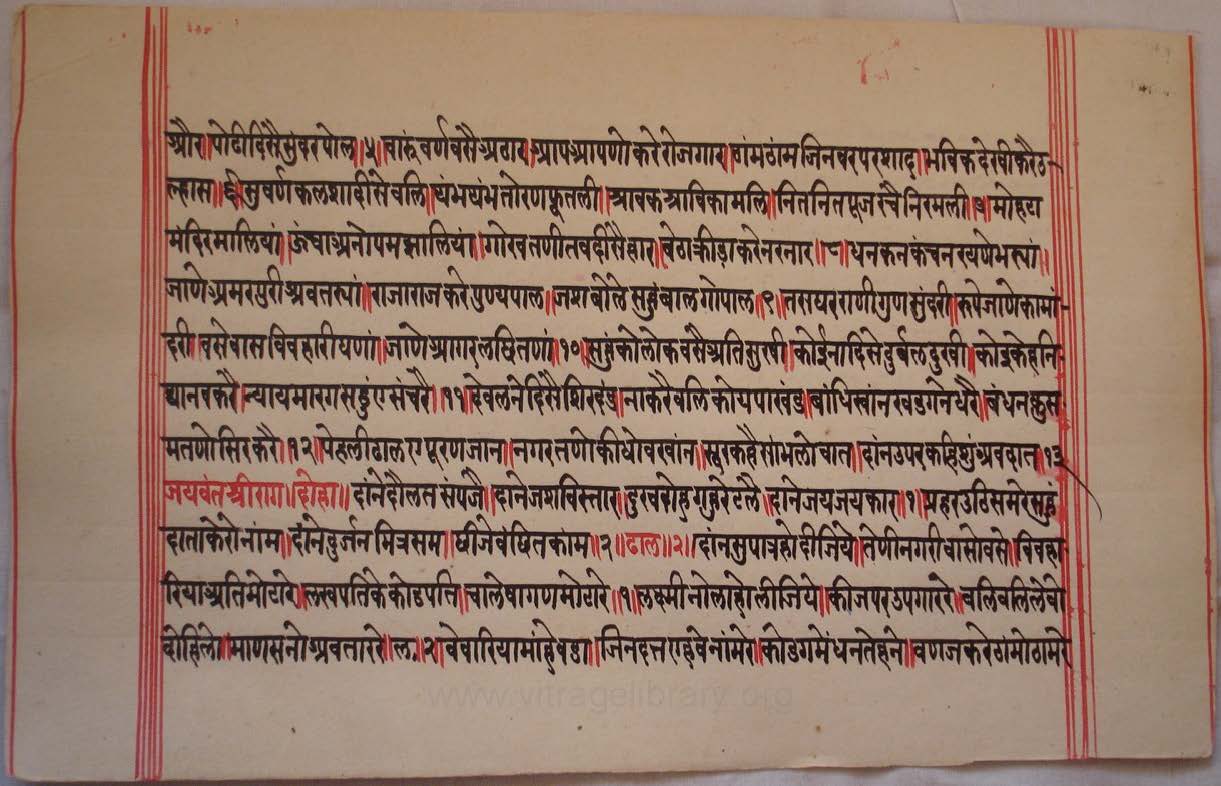 और।पोढीदिसैसुंदरपोल॥५॥चारूंवर्णवसैअढार॥आपआपणोकरेरोजगार॥ठांमठांमजिनवरपरशाद॥भविकदेखीकरैउ-
ल्हास॥६॥सुवर्णकलशादीसेवलि॥थंभथंभतोरणपूतली॥श्रावकश्राविकामलि॥नितनितपूजरचैनिरमली॥७॥मोहटा
मंदिरमालियां॥ऊंचाअनोपमझालियां॥गोखतणीतवदीसैहार॥बेठाक्रीडाकरेनरनार॥८॥धनकनकंचनरयणेभर्त्यां॥
जाणेअमरपुरीअवतर्त्यां॥राजाराजकरेपुण्यपाल॥जशबोलेसहुंबालगोपाल॥९॥तसघरराणीगुणसुंदरी॥रूपेजाणेकामां-
दरी॥वसेवासविवहारीयणां॥जाणेआगरलछितणां॥१०॥सहुंकोलोकवसैअतिसुखी॥कोईनादिसेदुर्बलदुखी॥कोइकेहनि-
द्यानवकरै॥न्यायमारगसहुंएसंचरै॥११॥देवलनेदिसैशिरदंड॥नाकरैवलिकोयपाखंड॥बांधिखांनखडगनेधरै॥बंधनकुस-
मतणोसिरकरै॥१२॥पेहलीढालएपूरणजान॥नगरतणोकीधोवखांन॥सूरकहैसांभलोवात॥दांनउपरकहिशुंअवदात॥१३॥
जयवंतश्रीराग॥दोहा॥दांनेदौलतसंपजै॥दानेजशविस्तार॥दुखदोहगदुरेटलै॥दानेजयजयकार॥१॥प्रहरउठिसमरेसहुं
दाताकेरोनांम॥दांनेदुर्जनमित्रसम॥सीजेवंछितकांम॥२॥ढाल॥२॥दांनसुपात्रहोदीजिये॥तेणीनगरीवासोवसे॥विवहा-
रियाअतिमोटारे॥लखपतिकेकोडपति॥चालेवागणमोटारे॥१॥लक्ष्मीनोलाहोलीजिये॥कीजपरउपगाररे॥वलिवलिलेवो
दोहिलो॥माणसनोअवताररे॥ल.॥२॥वेवारियामांहेवडा॥जिनदत्तएहवेनांमेरे॥कोडगमेंधनतेहने॥वणजकरेठांमोठामेरे
www.vitragelibrary.org